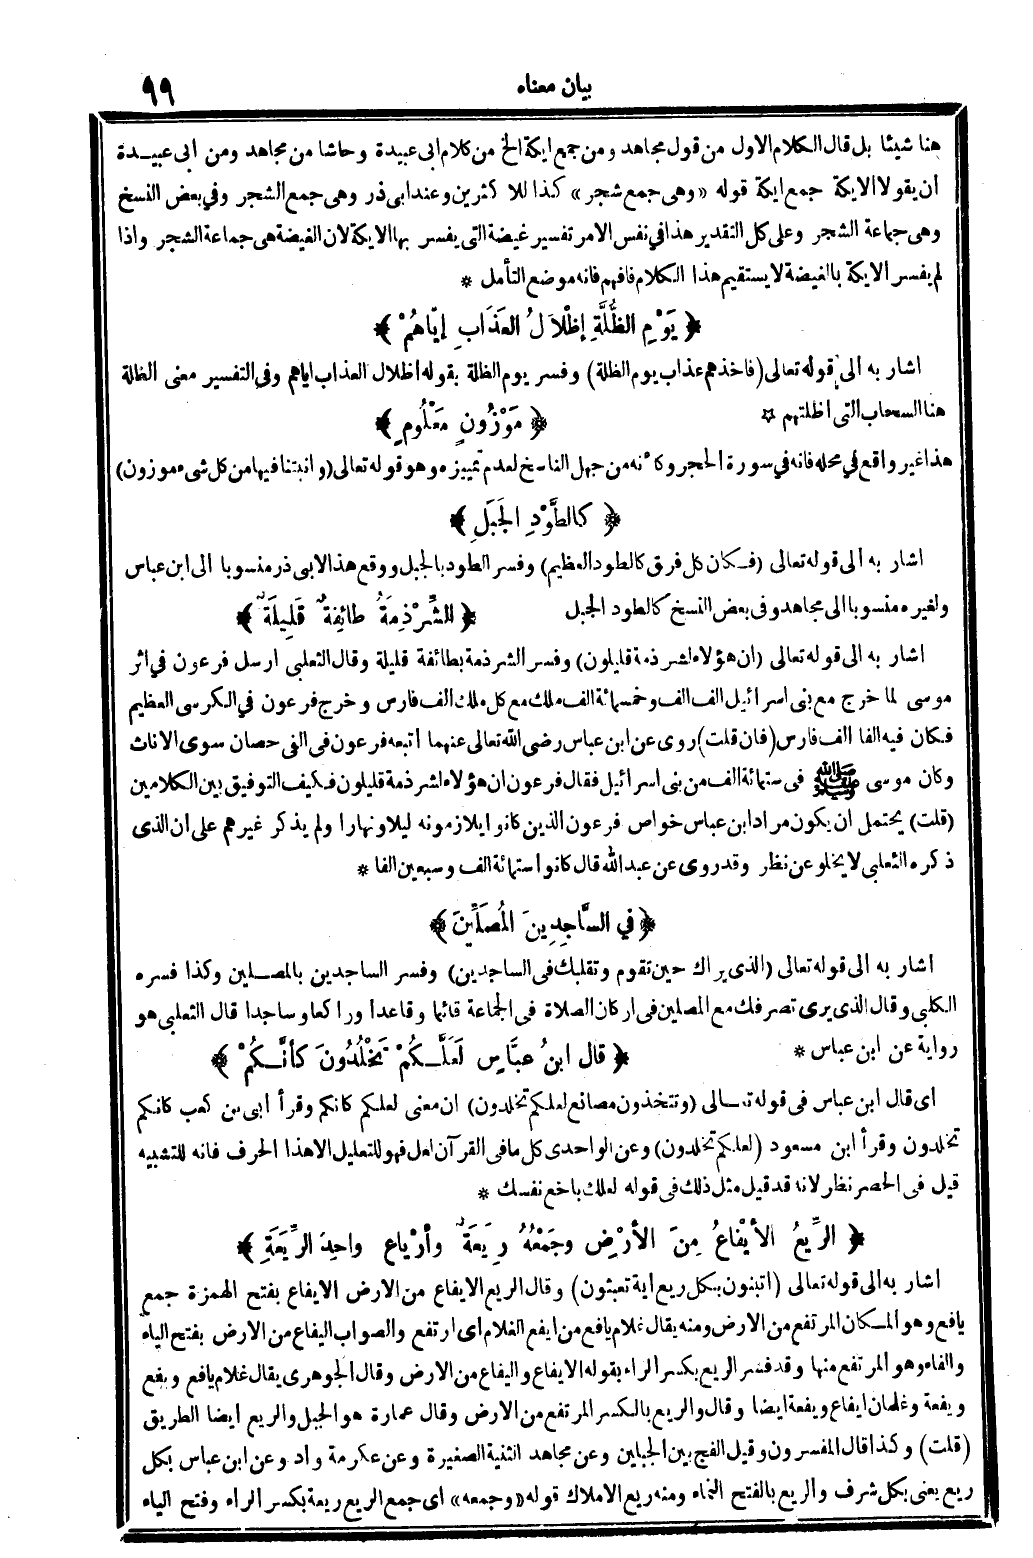 بيان معناه
٩٩
هنا شيئا بل قال الكلام الاول من قول مجاهد ومن جمع ايكة الخ من كلام ابى عبيدة وحاشا من مجاهد ومن ابى عبيدة
ان يقولا الايكة جمع ايكة قوله «وهى جمع شجر» كذا للاكثرين وعند ابى ذر وهى جمع الشجر وفي بعض النسخ
وهى جماعة الشجر وعلى كل التقدير هذا في نفس الامر تفسير غيضة التى يفسر بها الايكة لان الغيضة هى جماعة الشجر واذا
لم يفسر الايكة بالغيضة لا يستقيم هذا الكلام فافهم فانه موضع التأمل *
﴿ يَوْمِ الظُّلَّةِ إِظْلاَلُ العَذَابِ إِيَّاهُمْ ﴾
اشار به الى قوله تعالى (فاخذهم عذاب يوم الظلة) وفسر يوم الظلة بقوله اظلال العذاب اياهم وفى التفسير معنى الظالة
هنا السحاب التى اظلتهم *
﴿ مَوْزُونٍ مَعْلُومٍ ﴾
هذا غير واقع في محله فانه في سورة الحجر وكأنه من جهل الناسخ لعدم تمييزه وهو قوله تعالى (وانبتنا فيها من كل شىء موزون)
﴿ كالطَّوْدِ الجَبَلِ ﴾
اشار به الى قوله تعالى (فكان كل فرق كالطود العظيم) وفسر الطود بالجبل ووقع هذا لابى ذر منسوبا الى ابن عباس
ولغيره منسوبا الى مجاهد وفى بعض النسخ كالطود الجبل
﴿ للشِّرْذِمَةُ طائِفةٌ قَلِيلَةٌ ﴾
اشار به الى قوله تعالى (ان هؤلاء لشرذمة قليلون) وفسر الشرذمة بطائفة قليلة وقال الثعلبي ارسل فرعون في اثر
موسى لما خرج مع بنى اسرائيل الف الف وخمسمائة الف ملك مع كل ملك الف فارس وخرج فرعون في الكرسى العظيم
فكان فيه الفا الف فارس (فان قلت) روى عن ابن عباس رضى الله تعالى عنهما اتبعه فرعون فى الفى حصان سوى الاناث
وكان موسى ﷺ فى ستمائة الف من بنى اسرائيل فقال فرعون ان هؤلاء لشرذمة قليلون فكيف التوفيق بين الكلامين
(قلت) يحتمل ان يكون مراد ابن عباس خواص فرعون الذين كانوا يلازمونه ليلا ونهارا ولم يذكر غيرهم على ان الذى
ذكره الثعلبي لا يخلو عن نظر وقد روى عن عبد الله قال كانوا ستمائة الف وسبعين الفا *
﴿ في السَّاجِدِينَ المُصَلِّينَ ﴾
اشار به الى قوله تعالى (الذى يراك حين تقوم وتقلبك فى الساجدين) وفسر الساجدين بالمصلين وكذا فسره
الكلبى وقال الذى يرى تصرفك مع المصلين فى اركان الصلاة فى الجماعة قائما وقاعدا وراكعا وساجدا قال الثعلبي هو
رواية عن ابن عباس *
﴿ قال ابنُ عبَّاسٍ لَعَلَّكُمْ تَخْلُدُونَ كأنَّكُمْ ﴾
اى قال ابن عباس فى قوله تعالى (وتتخذون مصانع لعلكم تخلدون) ان معنى لعلكم كانكم وقرأ ابى بن كعب كانكم
تخلدون وقرأ ابن مسعود (لعلكم تخلدون) وعن الواحدى كل ما فى القرآن لعل فهو للتعليل الا هذا الحرف فانه للتشبيه
قيل فى الحصر نظر لانه قد قيل مثل ذلك فى قوله لعلك باخع نفسك *
﴿ الرِّيعُ الأيْفاعُ مِنَ الأرْضِ وجَمْعُهُ رِيَعَةٌ وأرْياع واحِدُ الرِّيَعَةِ ﴾
اشار به الى قوله تعالى (اتبنون بكل ريع اية تعبثون) وقال الريع الايفاع من الارض الايفاع بفتح الهمزة جمع
يافع وهو المكان المرتفع من الارض ومنه يقال غلام يافع من ايفع الغلام اى ارتفع والصواب اليفاع من الارض بفتح الياء
والفاء وهو المرتفع منها وقد فسر الريع بكسر الراء بقوله الايفاع واليفاع من الارض وقال الجوهرى يقال غلام يافع ويفع
ويفعة وغلمان ايفاع ويفعة ايضا وقال والريع بالكسر المرتفع من الارض وقال عمارة هو الجبل والريع ايضا الطريق
(قلت) وكذا قال المفسرون وقيل الفج بين الجبلين وعن مجاهد الثنية الصغيرة وعن عكرمة واد وعن ابن عباس بكل
ريع يعنى بكل شرف والريع بالفتح النماء ومنه ريع الاملاك قوله «وجمعه» اى جمع الريع ريعة بكسر الراء وفتح الياء